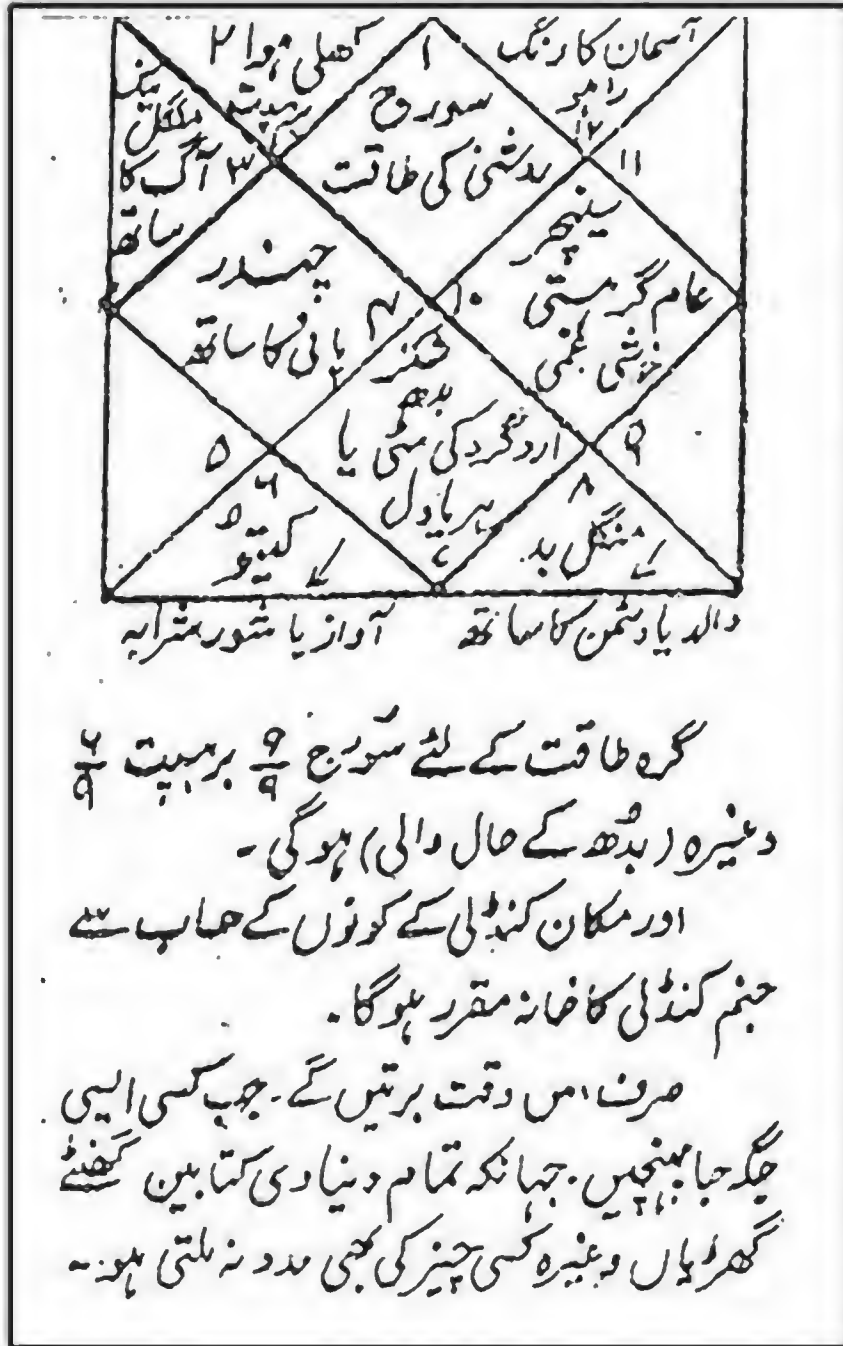 کھلی ہوا ۲
برہسپت
۱
سورج
روشنی کی طاقت
آسمان کا رنگ
راہو
۱۲
نیک
منگل
۳ آگ کا
ساتھ
۱۱
سنیچر
عام گرہستی
خوشی غمی
۱۰
چندر
۴
پانی کا ساتھ
شکر
بدھ
اردگرد کی مٹی یا
ہریاول
۷
۵
۶
کیتو
۹
۸
منگل بد
آواز یا شور شرابہ
والد یا دشمن کا ساتھ
گرہ طاقت کے لئے سورج ۹/۹ برہسپت ۶/۹
وغیرہ (بدھ کے حال والی) ہوگی۔
اور مکان کنڈلی کے کونوں کے حساب سے
جنم کنڈلی کا خانہ مقرر ہوگا۔
صرف اس وقت برتیں گے۔ جب کسی ایسی
جگہ جا پہنچیں۔ جہانکہ تمام دنیاوی کتابیں گھنٹے
گھڑیاں وغیرہ کسی چیز کی بھی مدد نہ ملتی ہو۔